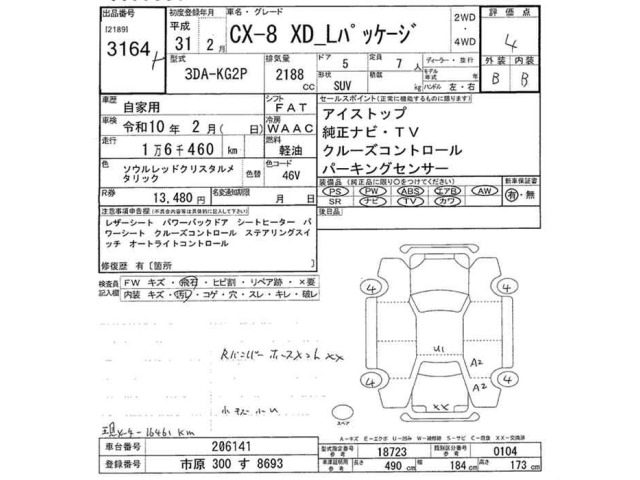 出品番号 初度登録年月 車名・グレード 2WD 評価点
[2189] 平成 CX-8 XD_Lパッケージ ・
3164 31 年 2 月 4WD 4
型式 排気量 ドア 定員 ディーラー・並行 外装 内装
3DA-KG2P 2188 5 7 人 モデル年式 年 B B
cc 形状 SUV 積載 kg ハンドル 左・右
車歴 自家用 シフト FAT セールスポイント(正常に機能するものに限ります)
車検 令和10 年 2 月( 日) 冷房 WAAC アイストップ
純正ナビ・TV
走行 1万6千460 km 燃料 軽油 クルーズコントロール
パーキングセンサー
色 ソウルレッドクリスタルメタリック 色替 色コード 46V
装備品(純正品に限り○をつけてください) 新車保証書
PS PW ABS エアB AW 有・無
R券 13,480 円 名変通知期限 月 日 SR ナビ TV カワ
注意事項申告欄(不具合内容等は具体的に記入して下さい) 後日品
レザーシート パワーバックドア シートヒーター パ
ワーシート クルーズコントロール ステアリングスイ
ッチ オートライトコントロール
修復歴 有[箇所 ]
検査員記入欄 FW キズ・飛石・ヒビ割・リペア跡・×要
内装 キズ・汚レ・コゲ・穴・スレ・キレ・破レ
4 4
U1 A2
A2
4 4
XX
スペア
16461 km
A-キズ E-エクボ U-凹み W-補修跡 S-サビ C-腐食 XX-交換済
車台番号 206141 型式指定番号 参考 18723 類別区分番号 参考 0104
登録番号 市原 300 す 8693 車庫証明用 参考 長さ 490 cm 幅 184 cm 高さ 173 cm